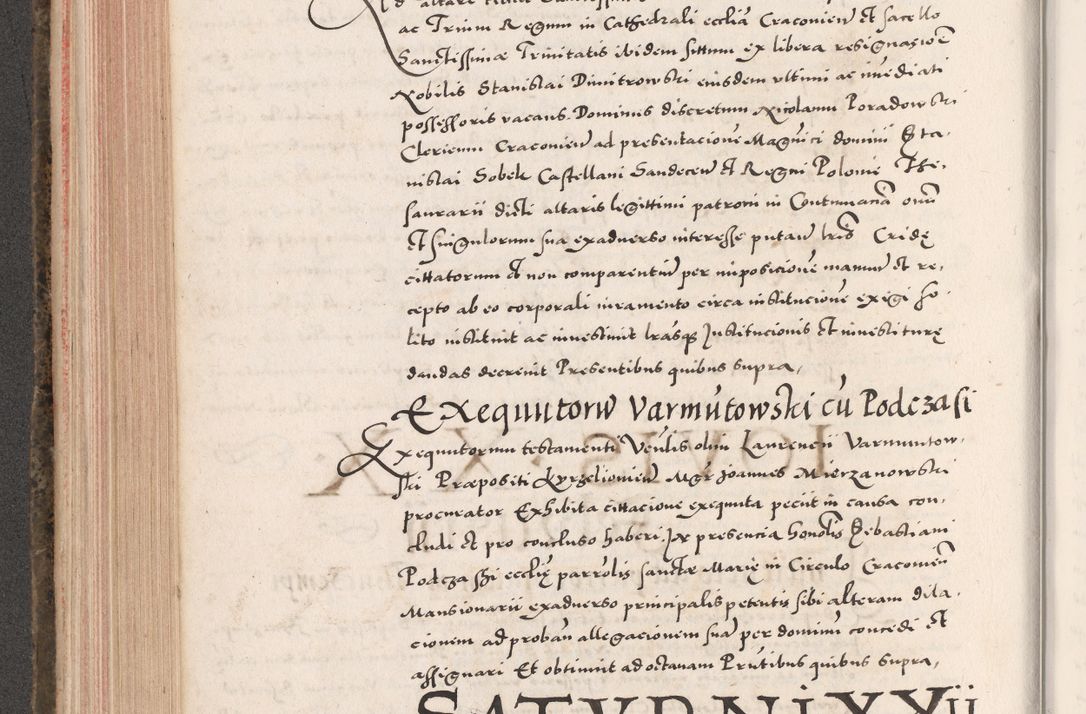 Ad altare
ac Trium Regum in Cathedrali ecclia Cracovien et sacello
Sanctissimae Trinitatis ibidem situm ex libera resignacioe
Nobilis Stanislai Dimitrowski eiusdem ultimi ac immediati
possessoris vacans. Dominus discretum Nicolaum Poradowski
Clericum Cracovien ad presentacione Magnici domini Sta-
nislai Sobek Castellani Sandecen et Regni Polonie The-
saurarii dicti altaris legittimi patroni in Contumacia oniu
et singulorum sua exadverso interesse putan lras Cride
cittatorum et non comparentiu per imposicione manuu et re-
cepto ab eo corporali iuramento circa institucione exigi so
lito instituit ac investivit lrasq Institucionis et investiture
dandas decrevit Presentibus quibus supra,
Exequutoru Varmutowski cu Podczasi
Exequutorum testamenti Venlis olim Laurencii Varmuntow-
ski Praepositi Kyrzelovien Mgr Joannes Mierzanowski
procurator Exhibita cittacione exequuta peciit in causa con-
cludi et pro concluso haberi. In presencia honolis Sebastiani
Podczaski ecclie parrolis sanctae Marie in Circulo Cracovien
Mansionarii exadverso principalis petentis sibi alteram dila-
cionem ad proban allegacionem sua per dominu concedi et
assignari Et obtinuit ad octavam Prntibus quibus supra,
SATVRNI XXII